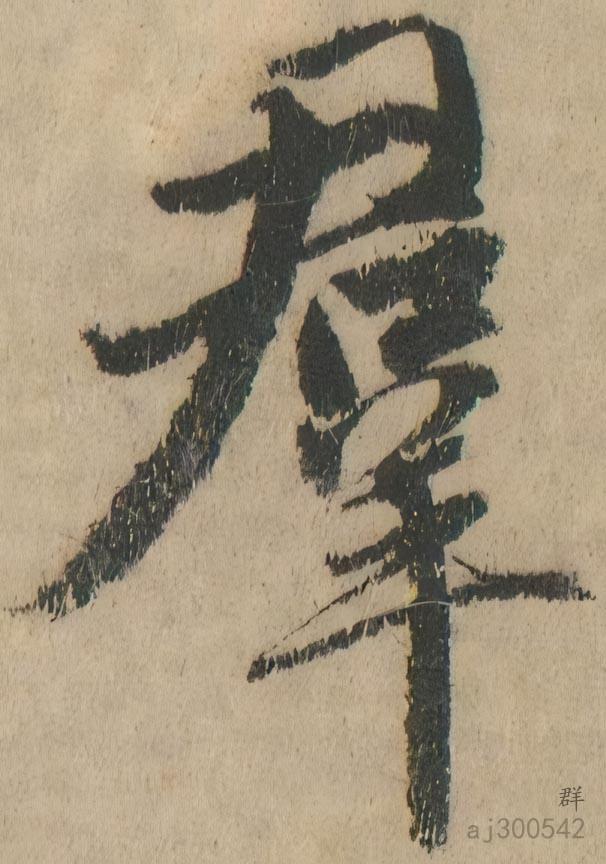 羣
群
aj300542